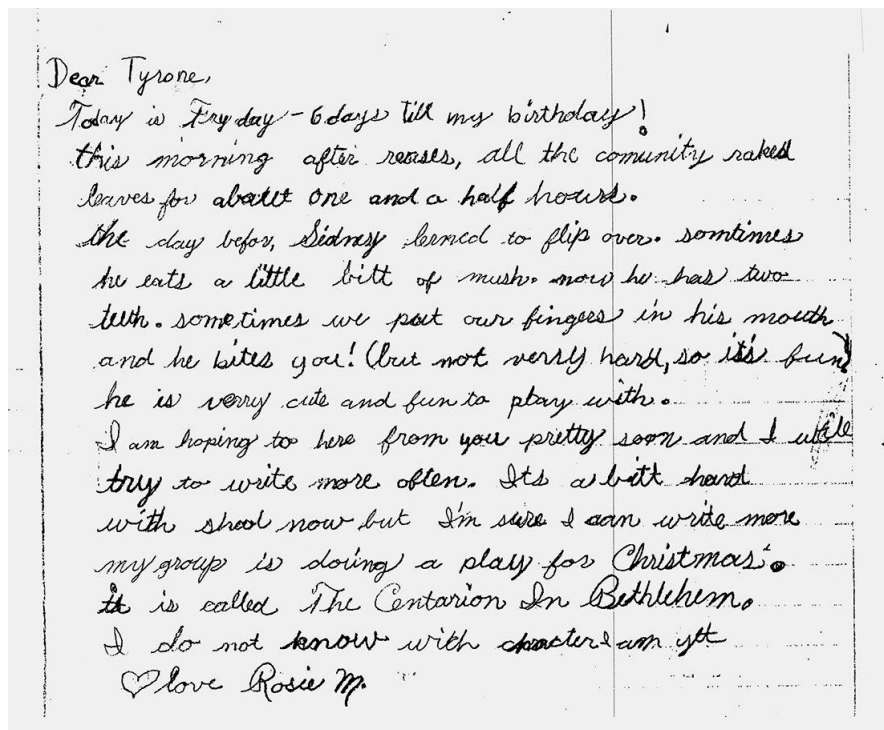 Dear Tyrone,
Today is Fryday - 6 days till my birthday!
this morning after reases, all the comunity raked
leaves for abautt one and a half hours.
the day befor, Sidney lerned to flip over. somtimes
he eats a little bitt of mush. now he has two
teeth. sometimes we put our fingers in his mouth
and he bites you! (but not verry hard, so it's fun)
he is verry cute and fun to play with.
I am hoping to here from you pretty soon and I will
try to write more often. Its a bitt hard
with shool now but I'm sure I can write more
my group is doing a play for Christmas.
it is called The Centarion In Bethlehem.
I do not know with chracter I am yet
♡ love Rosie M.